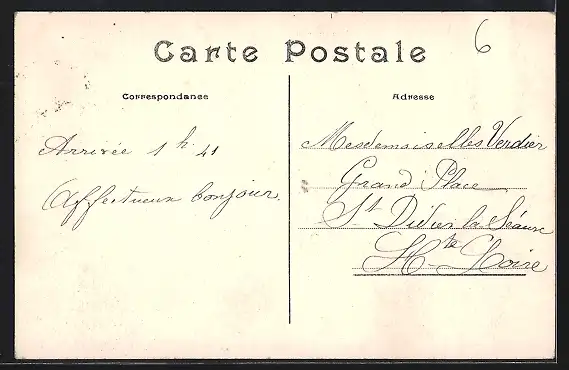 Carte Postale
6
Correspondance
Adresse
Arrivée 1 h. 41
Affectueux bonjour.
Mesdemoiselles Verdier
Grand Place
St Didier la Séauve
Hte Loire